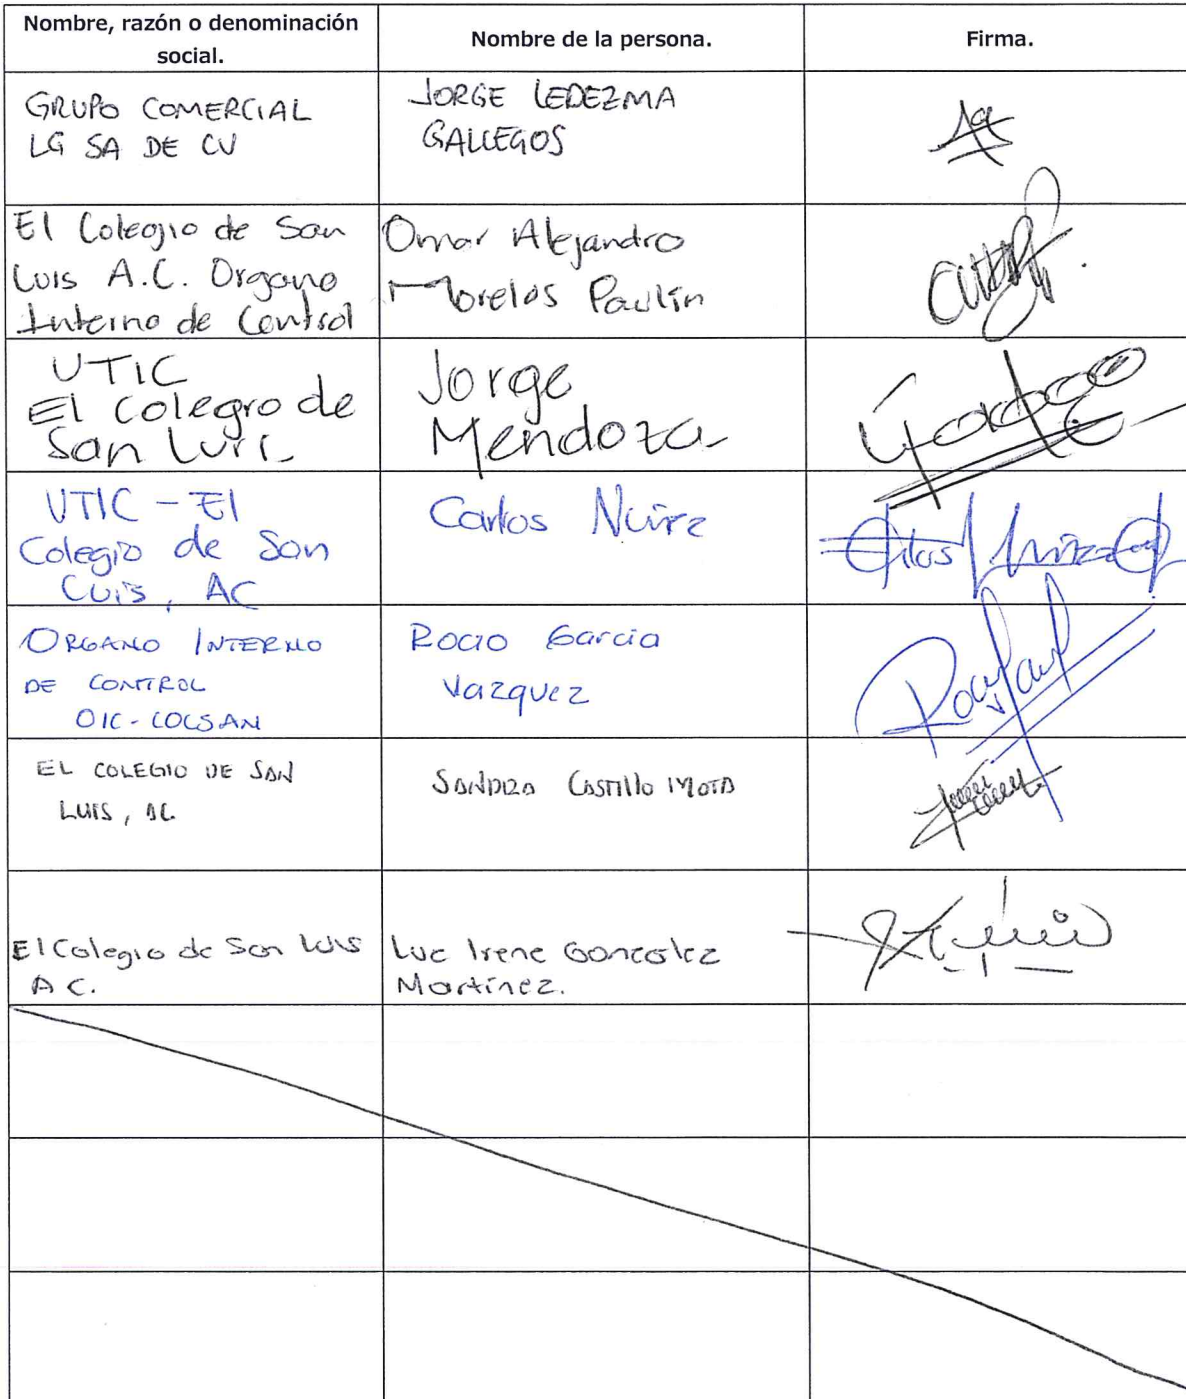 Nombre, razón o denominación
social.
Nombre de la persona.
Firma.
GRUPO COMERCIAL
LG SA DE CV
JORGE LEDEZMA
GALLEGOS
El Colegio de San
Luis A.C. Organo
Interno de Control
Omar Alejandro
Morelos Paulín
UTIC
El Colegio de
San Luis
Jorge
Mendoza
UTIC - El
Colegio de San
Luis, AC
Carlos Nuñez
ORGANO INTERNO
DE CONTROL
OIC-COLSAN
Rocio Garcia
Vazquez
EL COLEGIO DE SAN
LUIS, AC.
SANDRA CASTILLO MOTA
El Colegio de San Luis
A C.
Luz Irene Gonzalez
Martínez.